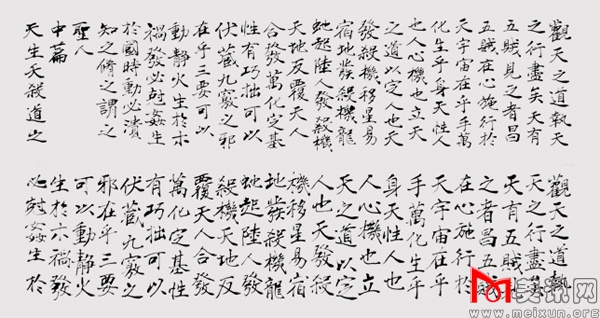 觀天之道執天
之行盡矣天有
五賊見之者昌
五賊在心施行於
天宇宙在乎手萬
化生乎身天性人
也人心機也立天
之道以定人也天
發殺機移星易
宿地發殺機龍
虵起陸人發殺機
天地反覆天人
合發萬化定基
性有巧拙可以
伏藏九竅之邪
在乎三要可以
動靜火生於木
禍發必尅姦生
於國時動必潰
知之脩之謂之
聖人
中篇
天生天殺道之
觀天之道執
天之行盡矣
天有五賊見
之者昌五賊
在心施行於
天宇宙在乎
手萬化生乎
身天性人也
人心機也立
天之道以定
人也天發殺
機移星易宿
地發殺機龍
虵起陸人發
殺機天地反
覆天人合發
萬化定基性
有巧拙可以
伏藏九竅之
邪在乎三要
可以動靜火
生於木禍發
必尅姦生於
美讯网
www.meixun.org